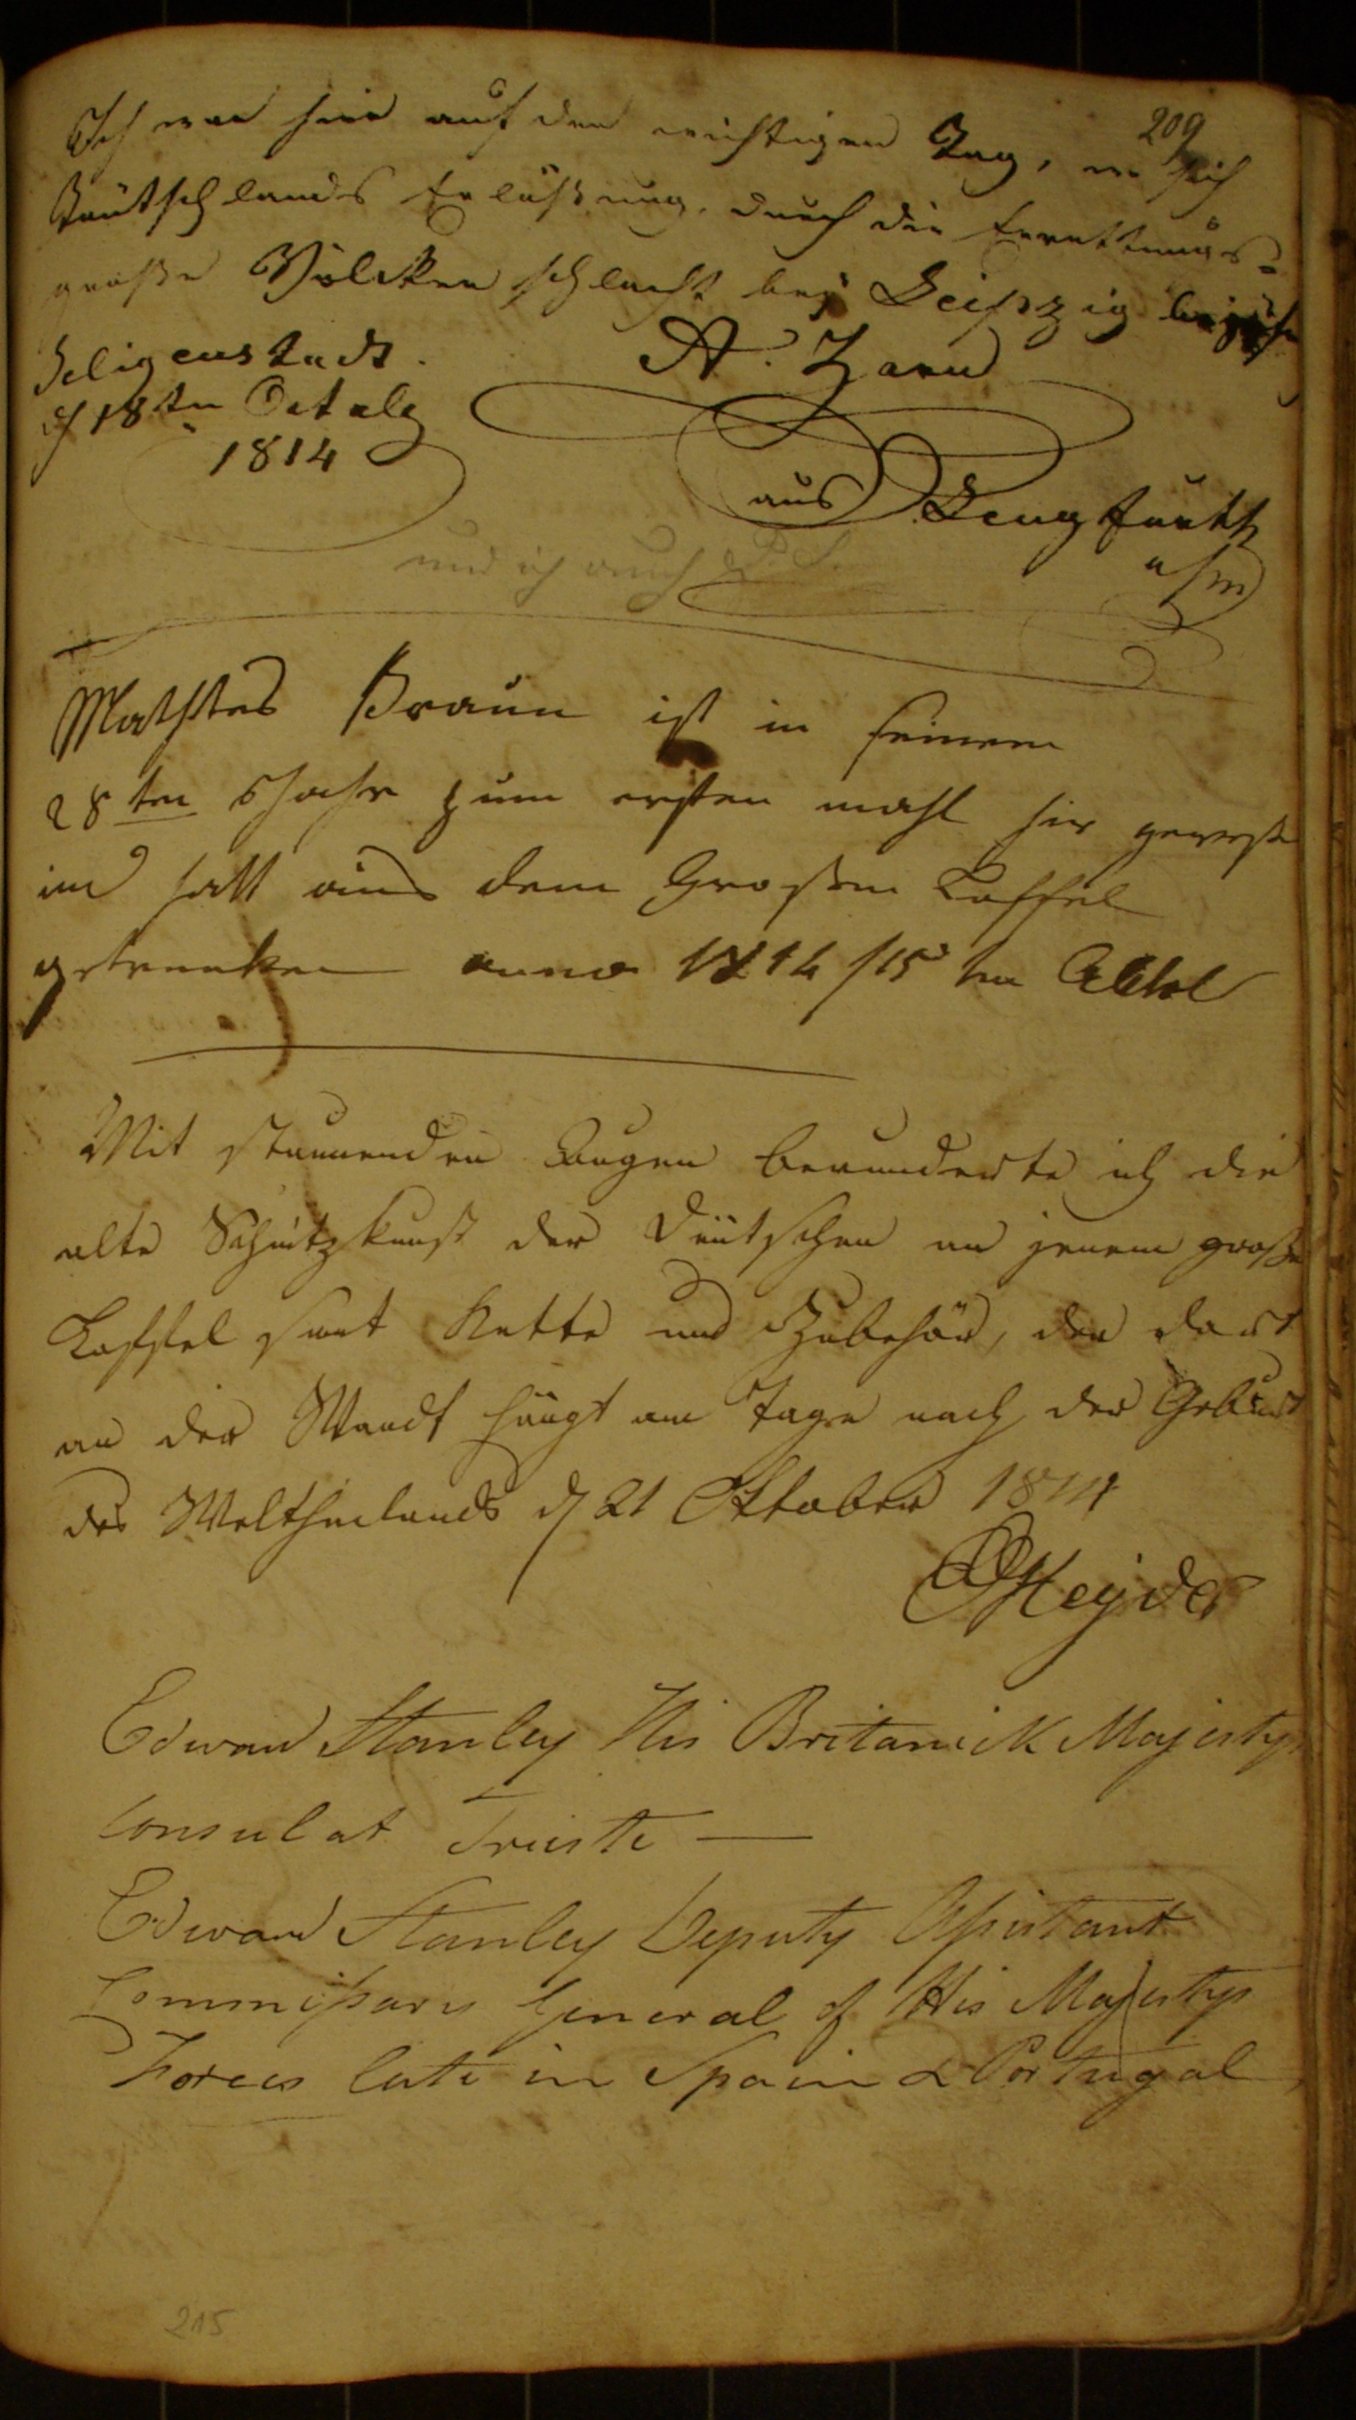 209
Ich war hier auf den wichtigen Tag, wo sich
Teütschlands Erlößung, durch die Errettungs-
große Völcker schlacht bey Leipzig
Seligenstadt
d 18ten Octob
1814
A. Zorn
aus Lengfurth
a/m
und ich auch
Mathtes Braun ist in seinem
28ten Jahr zum ersten mahl hir gewesse
un hatt aus dem Grosen Loffel
getruncken anno 1814 / 15 ten Octol
Mit staunenden Augen bewunderte ich die
alte Schnitzkunst der Deütschen an jenem große
Loffel samt Kette und Zubehör, der dort
an der Wandt hängt am Tage nach der Geburt
des Weltheilands d 21 Oktober 1814
Heyder
Edward Stanley His Britanick Majestys
Consul at Trieste —
Edward Stanley Deputy Assistant
Commissary General of His Majestys
Forces late in Spain & Portugal
215